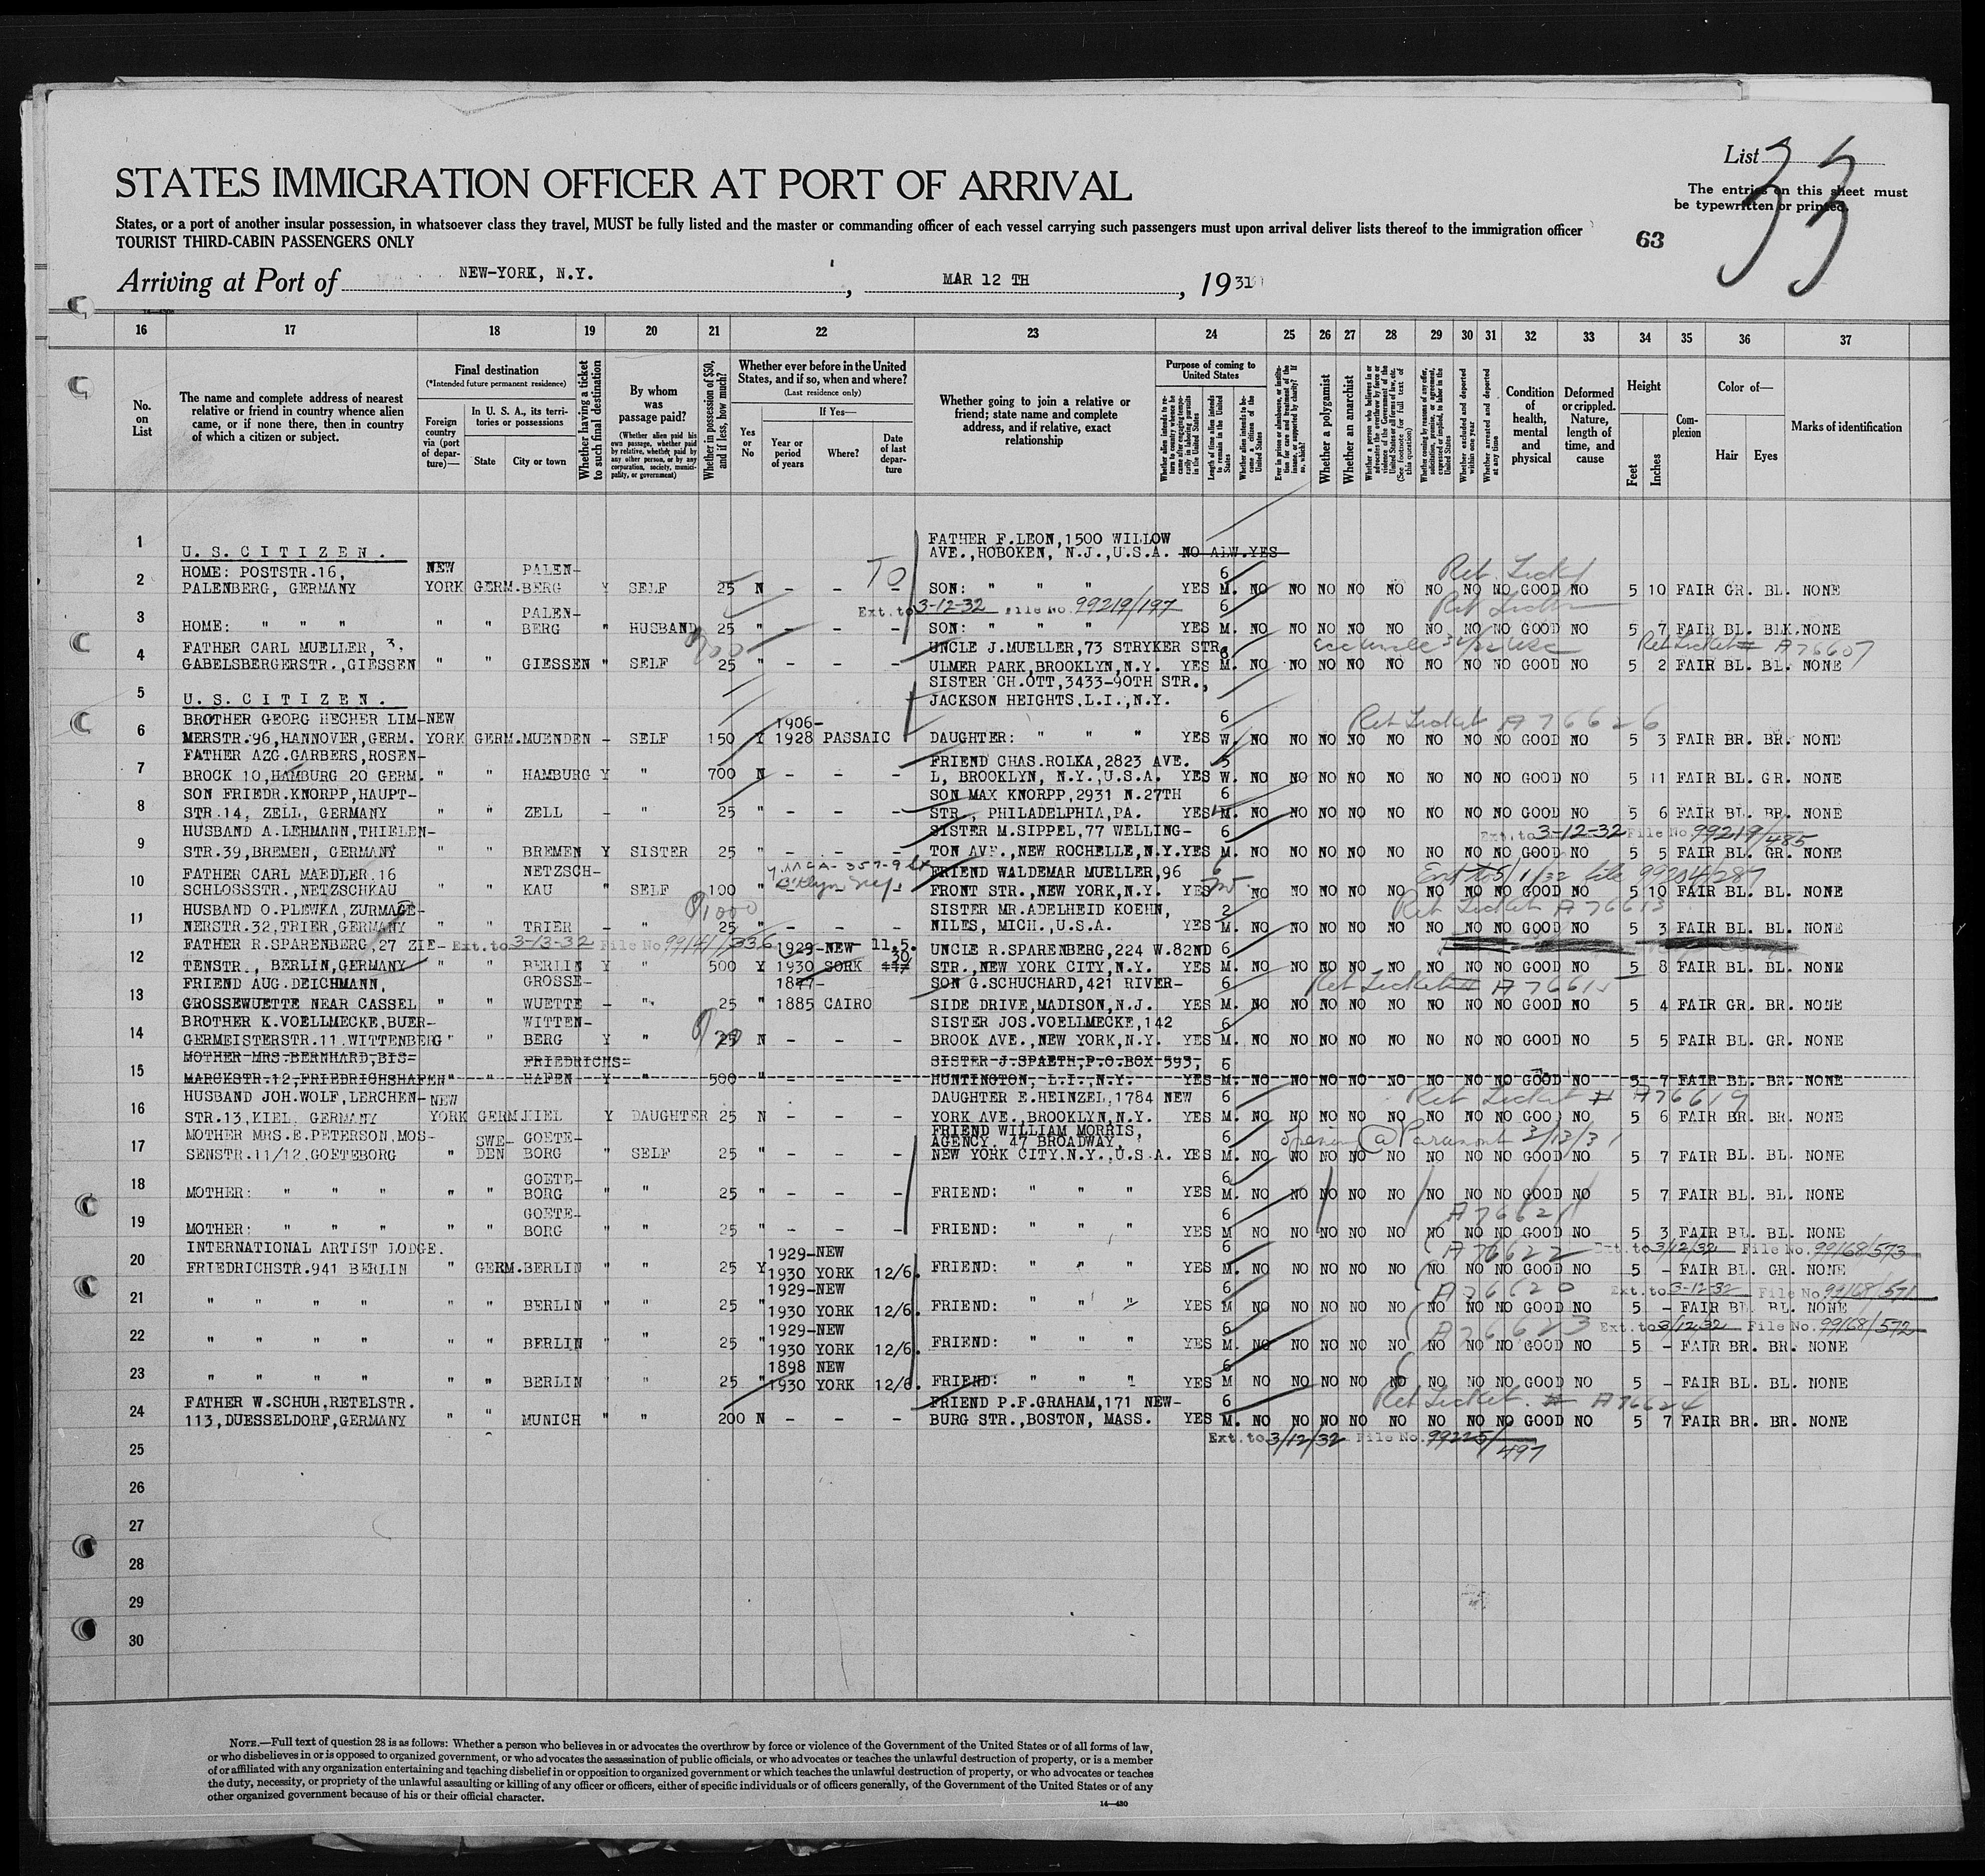 List 33
STATES IMMIGRATION OFFICER AT PORT OF ARRIVAL
The entries on this sheet must
be typewritten or printed.
States, or a port of another insular possession, in whatsoever class they travel, MUST be fully listed and the master or commanding officer of each vessel carrying such passengers must upon arrival deliver lists thereof to the immigration officer
TOURIST THIRD-CABIN PASSENGERS ONLY
63
Arriving at Port of NEW-YORK, N.Y., MAR 12 TH, 1931
16 17 18 19 20 21 22 23 24 25 26 27 28 29 30 31 32 33 34 35 36 37
No. on List
The name and complete address of nearest relative or friend in country whence alien came, or if none there, then in country of which a citizen or subject.
Final destination
(*Intended future permanent residence)
Foreign country via (port of departure)—
In U. S. A., its territories or possessions
State City or town
Whether having a ticket to such final destination
By whom was passage paid?
(Whether alien paid his own passage, whether paid by relative, whether paid by any other person, or by any corporation, society, municipality, or government)
Whether in possession of $50, and if less, how much?
Whether ever before in the United States, and if so, when and where?
(Last residence only)
Yes or No
If Yes—
Year or period of years
Where?
Date of last departure
Whether going to join a relative or friend; state name and complete address, and if relative, exact relationship
Purpose of coming to United States
Whether alien intends to return to country whence he came after engaging temporarily in laboring pursuits in the United States
Length of time alien intends to remain in the United States
Whether alien intends to become a citizen of the United States
Ever in prison or almshouse, or institution for care and treatment of the insane, or supported by charity? If so, which?
Whether a polygamist
Whether an anarchist
Whether coming by reasons of any offer, solicitation, promise, or agreement, expressed or implied, to labor in the United States
Whether excluded and deported within one year
Whether arrested and deported at any time
Condition of health, mental and physical
Deformed or crippled. Nature, length of time, and cause
Height
Feet Inches
Complexion
Color of—
Hair Eyes
Marks of identification
FATHER F.LEON,1500 WILLOW
1 U. S. C I T I Z E N . AVE.,HOBOKEN, N.J.,U.S.A. NO ALW.YES
HOME: POSTSTR.16, NEW PALEN- TO 6 Ret Ticket
2 PALENBERG, GERMANY YORK GERM. BERG Y SELF 25 N - - - SON: " " " YES M. NO NO NO NO NO NO NO NO GOOD NO 5 10 FAIR GR. BL. NONE
PALEN- Ext. to 3-12-32 File No. 99219/197 6 Ret Ticket
3 HOME: " " " " " BERG " HUSBAND 25 " - - - SON: " " " YES M. NO NO NO NO NO NO NO NO GOOD NO 5 7 FAIR BL. BLK. NONE
FATHER CARL MUELLER, 3, UNCLE J.MUELLER,73 STRYKER STR. 6 Ret Ticket # A76607
4 GABELSBERGERSTR.,GIESSEN " " GIESSEN " SELF 25 " - - - ULMER PARK,BROOKLYN,N.Y. YES M. NO NO NO NO NO NO NO NO GOOD NO 5 2 FAIR BL. BL. NONE
SISTER CH.OTT,3433-90TH STR.,
5 U. S. C I T I Z E N . JACKSON HEIGHTS,L.I.,N.Y.
BROTHER GEORG HECHER LIM- NEW 1906- 6 Ret Ticket A76626
6 MERSTR.96,HANNOVER,GERM. YORK GERM. MUENDEN - SELF 150 Y 1928 PASSAIC DAUGHTER: " " " YES W. NO NO NO NO NO NO NO NO GOOD NO 5 3 FAIR BR. BR. NONE
FATHER AZG.GARBERS,ROSEN- FRIEND CHAS.ROLKA,2823 AVE. 5
7 BROCK 10,HAMBURG 20 GERM. " " HAMBURG Y " 700 N - - - L, BROOKLYN, N.Y.,U.S.A. YES W. NO NO NO NO NO NO NO NO GOOD NO 5 11 FAIR BL. GR. NONE
SON FRIEDR.KNORPP,HAUPT- SON MAX KNORPP,2931 N.27TH 6
8 STR.14, ZELL, GERMANY " " ZELL - " 25 " - - - STR., PHILADELPHIA,PA. YES M. NO NO NO NO NO NO NO NO GOOD NO 5 6 FAIR BL. BR. NONE
HUSBAND A.LEHMANN,THIELEN- SISTER M.SIPPEL,77 WELLING- 6 Ext. to 3-12-32 File No. 99219/485
9 STR.39,BREMEN, GERMANY " " BREMEN Y SISTER 25 " - - - TON AVE.,NEW ROCHELLE,N.Y. YES M. NO NO NO NO NO NO NO NO GOOD NO 5 5 FAIR BL. GR. NONE
FATHER CARL MAEDLER.16 NETZSCH- FRIEND WALDEMAR MUELLER,96 6
10 SCHLOSSSTR.,NETZSCHKAU " " KAU " SELF 100 " FRONT STR.,NEW YORK,N.Y. YES NO NO NO NO NO NO NO NO GOOD NO 5 10 FAIR BL. BL. NONE
HUSBAND O.PLEWKA,ZURMAGE- SISTER MR.ADELHEID KOEHN, 2 Ret Ticket A76613
11 NERSTR.32,TRIER,GERMANY " " TRIER - " 25 " - - - NILES, MICH.,U.S.A. YES M. NO NO NO NO NO NO NO NO GOOD NO 5 3 FAIR BL. BL. NONE
FATHER R.SPARENBERG,27 ZIE- Ext. to 3-13-32 File No. 1929-NEW 11.5. UNCLE R.SPARENBERG,224 W.82ND 6
12 TENSTR., BERLIN,GERMANY " " BERLIN Y " 500 Y 1930 SORK 30 STR.,NEW YORK CITY,N.Y. YES M. NO NO NO NO NO NO NO NO GOOD NO 5 8 FAIR BL. BL. NONE
FRIEND AUG.DEICHMANN, GROSSE- 1877- SON G.SCHUCHARD,421 RIVER- 6 Ret Ticket # A76615
13 GROSSEWUETTE NEAR CASSEL " " WUETTE - " 25 " 1885 CAIRO SIDE DRIVE,MADISON,N.J. YES M. NO NO NO NO NO NO NO NO GOOD NO 5 4 FAIR GR. BR. NONE
BROTHER K.VOELLMECKE,BUER- WITTEN- SISTER JOS.VOELLMECKE,142 6
14 GERMEISTERSTR.11.WITTENBERG " " BERG Y " 25 N - - - BROOK AVE.,NEW YORK,N.Y. YES M. NO NO NO NO NO NO NO NO GOOD NO 5 5 FAIR BL. GR. NONE
MOTHER MRS.BERNHARD,BIS- FRIEDRICHS- SISTER J.SPAETH,P.O.BOX 593, 6
15 MARCKSTR.12,FRIEDRICHSHAFEN " " HAFEN Y " 500 " - - - HUNTINGTON, L.I.,N.Y. YES M. NO NO NO NO NO NO NO NO GOOD NO 5 7 FAIR BL. BR. NONE
HUSBAND JOH.WOLF,LERCHEN- NEW DAUGHTER E.HEINZEL,1784 NEW 6 Ret Ticket # A76619
16 STR.13,KIEL, GERMANY YORK GERM. KIEL Y DAUGHTER 25 N - - - YORK AVE.,BROOKLYN,N.Y. YES M. NO NO NO NO NO NO NO NO GOOD NO 5 6 FAIR BR. BR. NONE
MOTHER MRS.E.PETERSON,MOS- SWE- GOETE- FRIEND WILLIAM MORRIS, AGENCY. 47 BROADWAY, 6 Opening @ Paramount 3/13/31
17 SENSTR.11/12,GOETEBORG " DEN BORG " SELF 25 " - - - NEW YORK CITY.N.Y.,U.S.A. YES M. NO NO NO NO NO NO NO NO GOOD NO 5 7 FAIR BL. BL. NONE
GOETE- 6
18 MOTHER: " " " " " BORG " " 25 " - - - FRIEND: " " " YES M. NO NO NO NO NO NO NO NO GOOD NO 5 7 FAIR BL. BL. NONE
GOETE- 6 A76621
19 MOTHER: " " " " " BORG " " 25 " - - - FRIEND: " " " YES M NO NO NO NO NO NO NO NO GOOD NO 5 3 FAIR BL. BL. NONE
INTERNATIONAL ARTIST LODGE. 1929-NEW 6 A76622 Ext. to 3/12/32 File No. 99168/573
20 FRIEDRICHSTR.941 BERLIN " GERM. BERLIN " " 25 Y 1930 YORK 12/6. FRIEND: " " " YES M. NO NO NO NO NO NO NO NO GOOD NO 5 - FAIR BL. GR. NONE
1929-NEW 6 A76620 Ext. to 3-12-32 File No. 99168/571
21 " " " " " " BERLIN " " 25 " 1930 YORK 12/6. FRIEND: " " " YES M NO NO NO NO NO NO NO NO GOOD NO 5 - FAIR BL BL. NONE
1929-NEW 6 A76623 Ext. to 3/12/32 File No. 99168/572
22 " " " " " " BERLIN " " 25 " 1930 YORK 12/6. FRIEND: " " " YES M. NO NO NO NO NO NO NO NO GOOD NO 5 - FAIR BR. BR. NONE
1898 NEW 6
23 " " " " " " BERLIN " " 25 " 1930 YORK 12/6. FRIEND: " " " YES M NO NO NO NO NO NO NO NO GOOD NO 5 - FAIR BL. BL. NONE
FATHER W.SCHUH,RETELSTR. FRIEND P.F.GRAHAM,171 NEW- 6 Ret Ticket # A76624
24 113,DUESSELDORF,GERMANY " " MUNICH " " 200 N - - - BURG STR.,BOSTON, MASS. YES M. NO NO NO NO NO NO NO NO GOOD NO 5 7 FAIR BR. BR. NONE
25 Ext. to 3/12/32 File No. 99225/497
26
27
28
29
30
NOTE.—Full text of question 28 is as follows: Whether a person who believes in or advocates the overthrow by force or violence of the Government of the United States or of all forms of law,
or who disbelieves in or is opposed to organized government, or who advocates the assassination of public officials, or who advocates or teaches the unlawful destruction of property, or is a member
of or affiliated with any organization entertaining and teaching disbelief in or opposition to organized government or which teaches the unlawful destruction of property, or who advocates or teaches
the duty, necessity, or propriety of the unlawful assaulting or killing of any officer or officers, either of specific individuals or of officers generally, of the Government of the United States or of any
other organized government because of his or their official character.
14—430